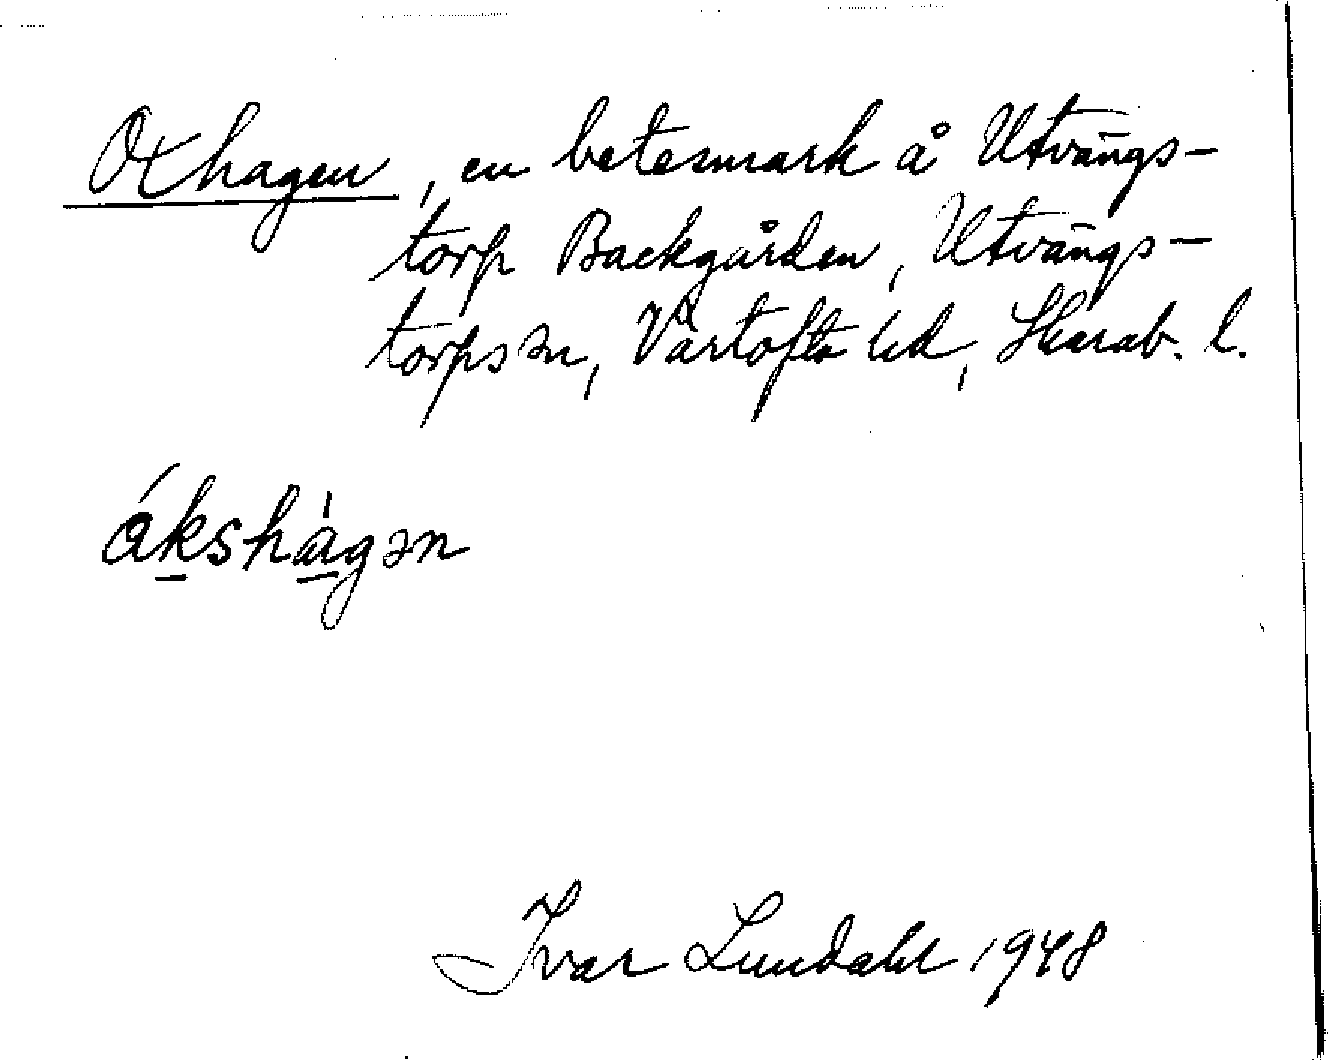 Oxhagen, en betesmark å Utvängs-
torp Backgården, Utvängs-
torps sn, Vartofta hd, Skarab. l.
åkshàgən
Ivar Lundahl 1948